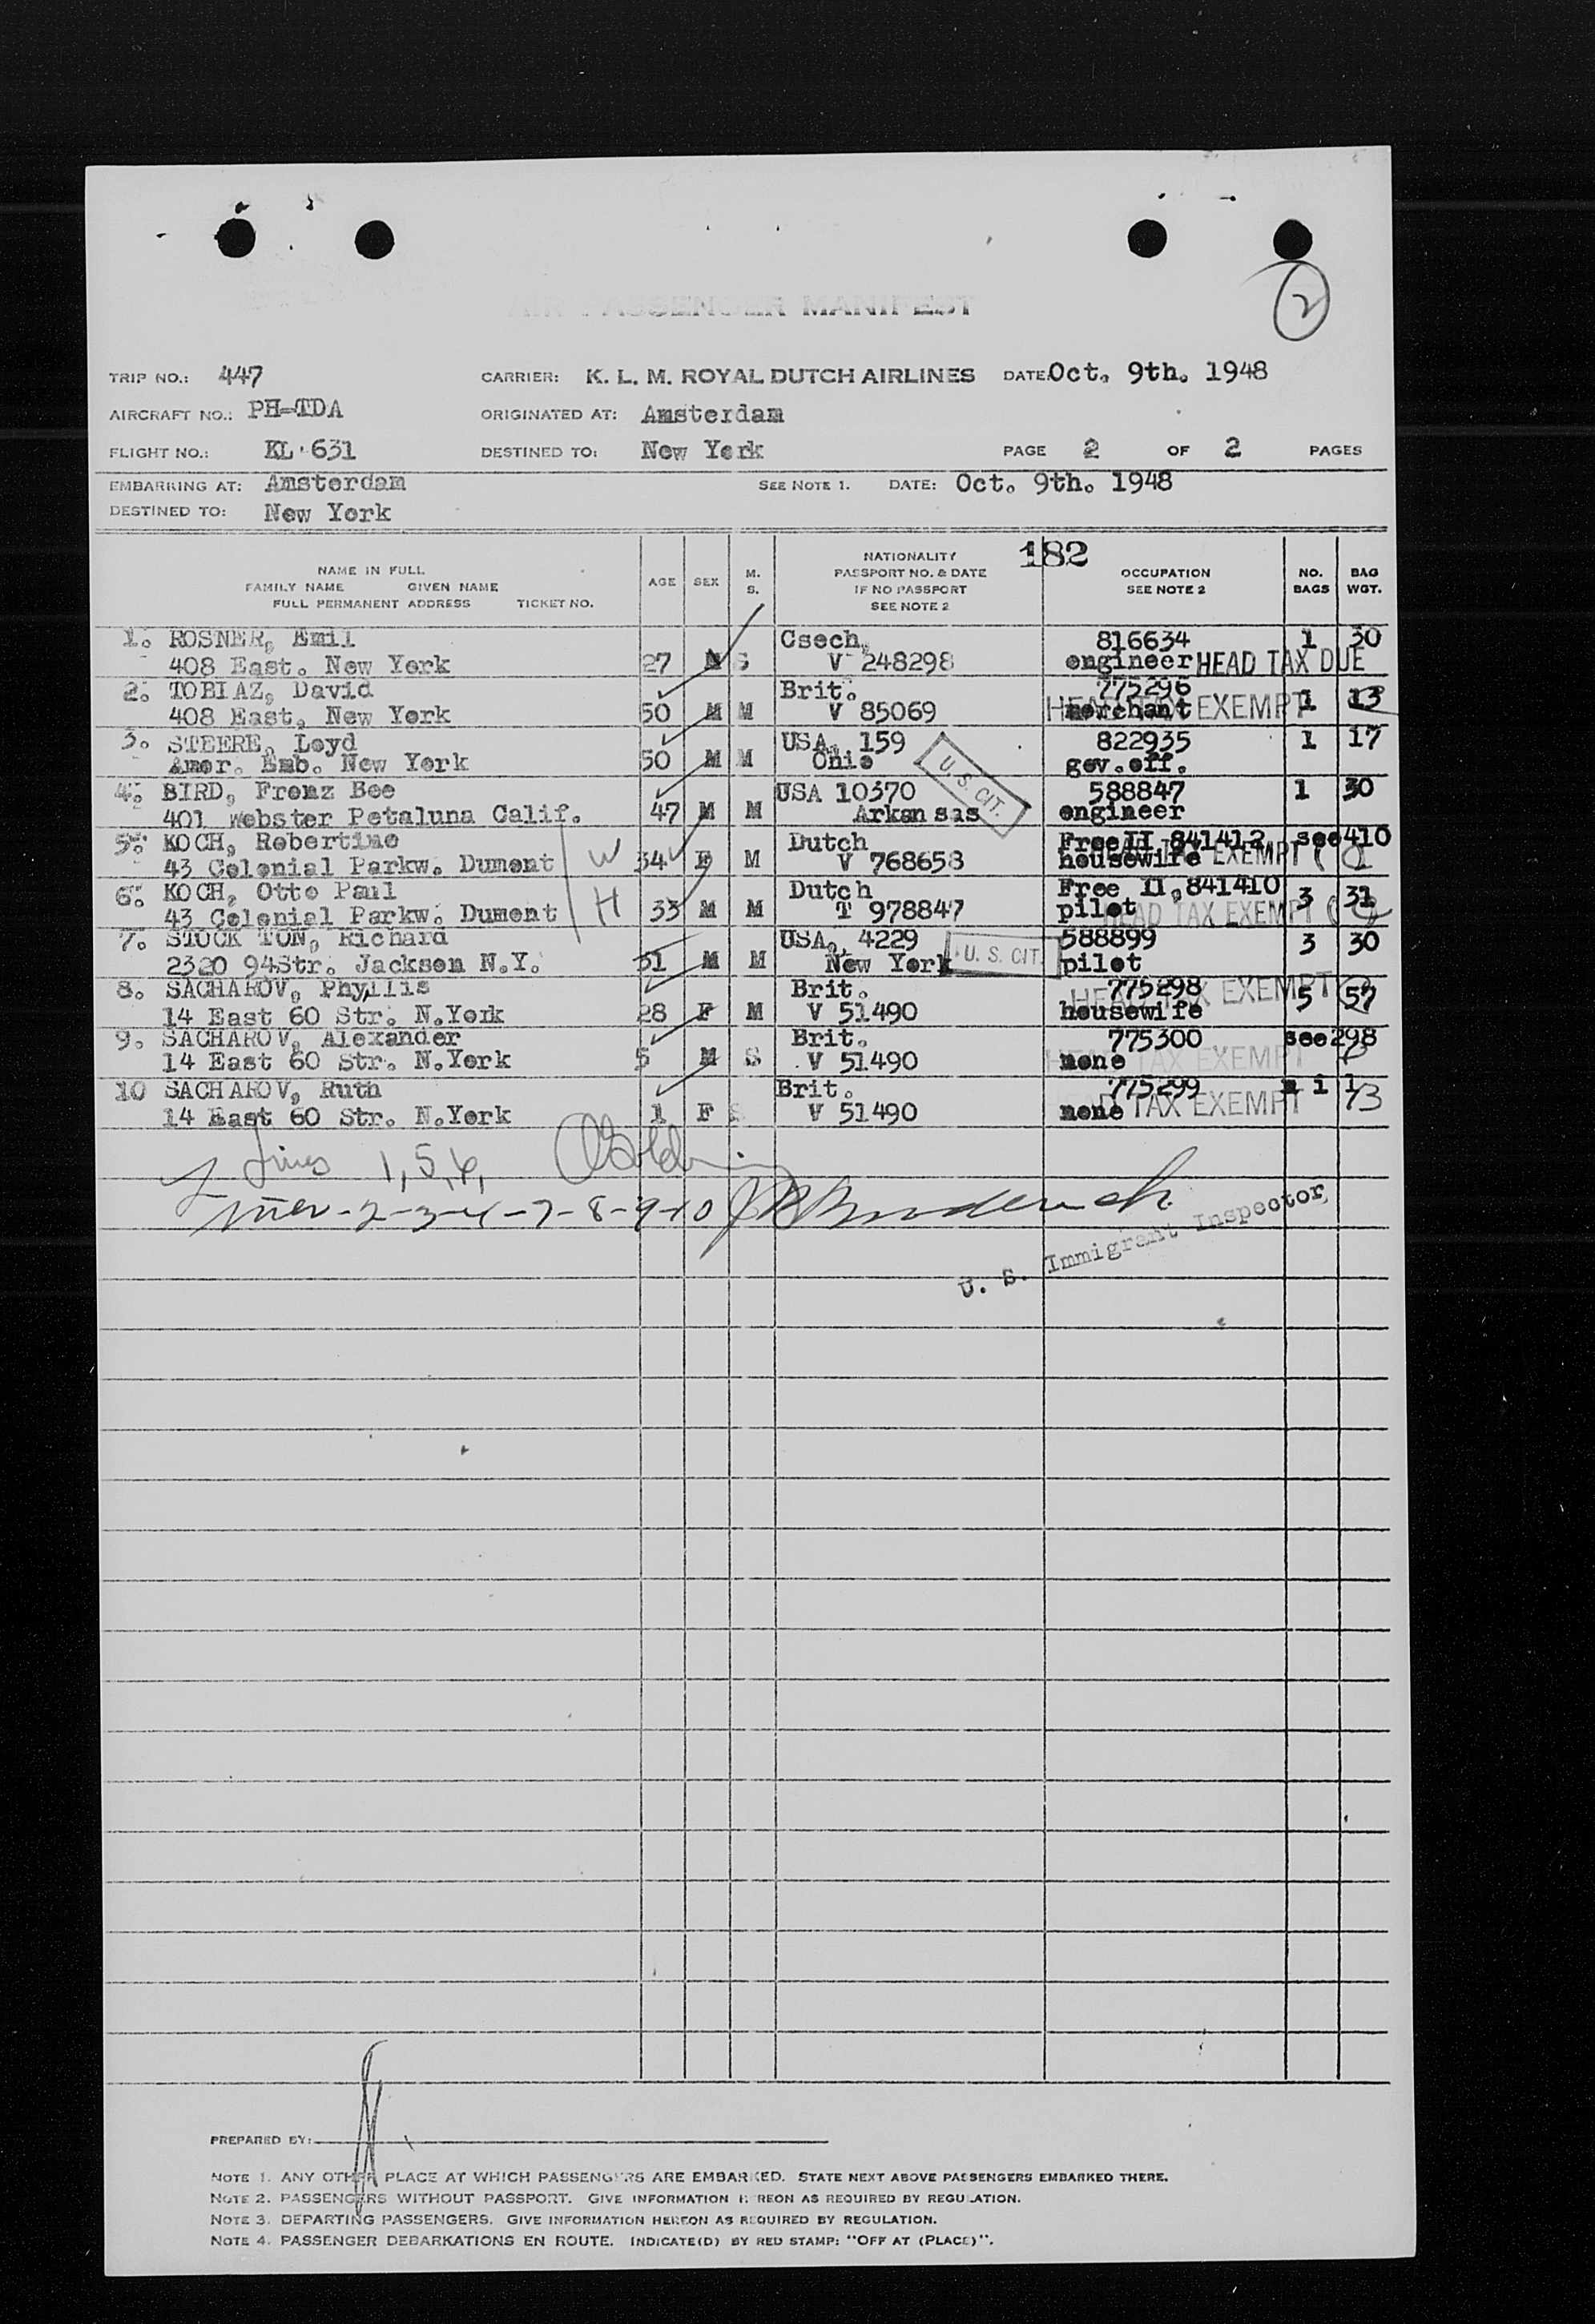 2
AIR PASSENGER MANIFEST
TRIP NO.: 447 CARRIER: K. L. M. ROYAL DUTCH AIRLINES DATE: Oct. 9th. 1948
AIRCRAFT NO.: PH-TDA ORIGINATED AT: Amsterdam
FLIGHT NO.: KL 631 DESTINED TO: New York PAGE 2 OF 2 PAGES
EMBARKING AT: Amsterdam SEE NOTE 1. DATE: Oct. 9th. 1948
DESTINED TO: New York
182
NAME IN FULL
FAMILY NAME GIVEN NAME
FULL PERMANENT ADDRESS TICKET NO.
AGE SEX M. S.
NATIONALITY
PASSPORT NO. & DATE
IF NO PASSPORT
SEE NOTE 2
OCCUPATION
SEE NOTE 2
NO. BAGS
BAG WGT.
1. ROSNER, Emil Csech. 816634 1 30
408 East. New York 27 M S V 248298 engineer HEAD TAX DUE
2. TOBIAZ, David Brit. 775296
408 East, New York 50 M M V 85069 merchant HEAD TAX EXEMPT 1 13
3. STEERE, Loyd USA. 159 822935 1 17
Amer. Emb. New York 50 M M Ohio gov.off.
U. S. CIT.
4. BIRD, Frenz Bee USA 10370 588847 1 30
401 Webster Petaluna Calif. 47 M M Arkansas engineer
5. KOCH, Robertine W Dutch Free II 841412 see 410
43 Colonial Parkw. Dument 34 F M V 768658 housewife HEAD TAX EXEMPT
6. KOCH, Otto Paul H Dutch Free II,841410 3 31
43 Colonial Parkw. Dument 33 M M T 978847 pilot HEAD TAX EXEMPT
7. STOCK TON, Richard USA. 4229 U. S. CIT. 588899 3 30
2320 94Str. Jackson N.Y. 31 M M New York pilot
8. SACHAROV, Phyllis Brit. 775298 HEAD TAX EXEMPT 5 57
14 East 60 Str. N.York 28 F M V 51490 housewife
9. SACHAROV, Alexander Brit. 775300 see 298
14 East 60 Str. N.York 5 M S V 51490 none HEAD TAX EXEMPT
10 SACHAROV, Ruth Brit. 775299 nil 13
14 East 60 Str. N.York 1 F S V 51490 none HEAD TAX EXEMPT
Lines 1,5,6,
Lines - 2-3-4-7-8-9-10
U. S. Immigrant Inspector,
PREPARED BY:
NOTE 1. ANY OTHER PLACE AT WHICH PASSENGERS ARE EMBARKED. STATE NEXT ABOVE PASSENGERS EMBARKED THERE.
NOTE 2. PASSENGERS WITHOUT PASSPORT. GIVE INFORMATION HEREON AS REQUIRED BY REGULATION.
NOTE 3. DEPARTING PASSENGERS. GIVE INFORMATION HEREON AS REQUIRED BY REGULATION.
NOTE 4. PASSENGER DEBARKATIONS EN ROUTE. INDICATE(D) BY RED STAMP: "OFF AT (PLACE)".